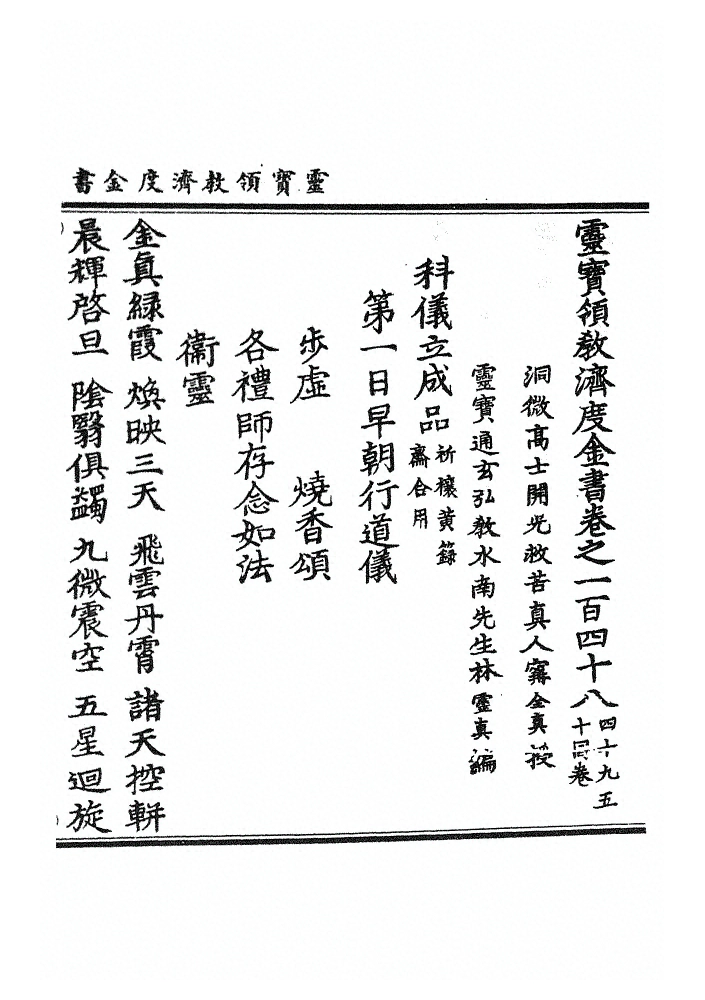 靈寶領教濟度金書
靈寶領教濟度金書卷之一百四十八四十九五十同卷
洞微高士開光救苦真人寗全真授
靈寶通玄弘教水南先生林靈真編
科儀立成品祈禳黃籙齋合用
第一日早朝行道儀
步虛 燒香頌
各禮師存念如法
衞靈
金真緑霞 煥映三天 飛雲丹霄 諸天控軿
晨輝啓旦 陰翳俱蠲 九微震空 五星迴旋